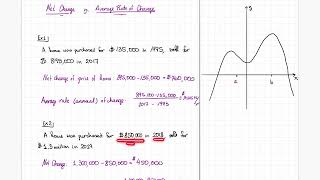 Net Change & Average Rate of Change
Ex1
A home was purchased for $135,000 in 1995, sold for
$ 895,000 in 2017
Net change of price of home: 895,000 - 135,000 = $760,000
Average rate (annual) of change:
895,000 - 135,000
2017 - 1995
Ex2
A home was purchased for $ 850,000 in 2018, sold for
$ 1.3 million in 2022.
Net Change: 1,300,000 - 850,000 = $ 450,000
y
x
a
b